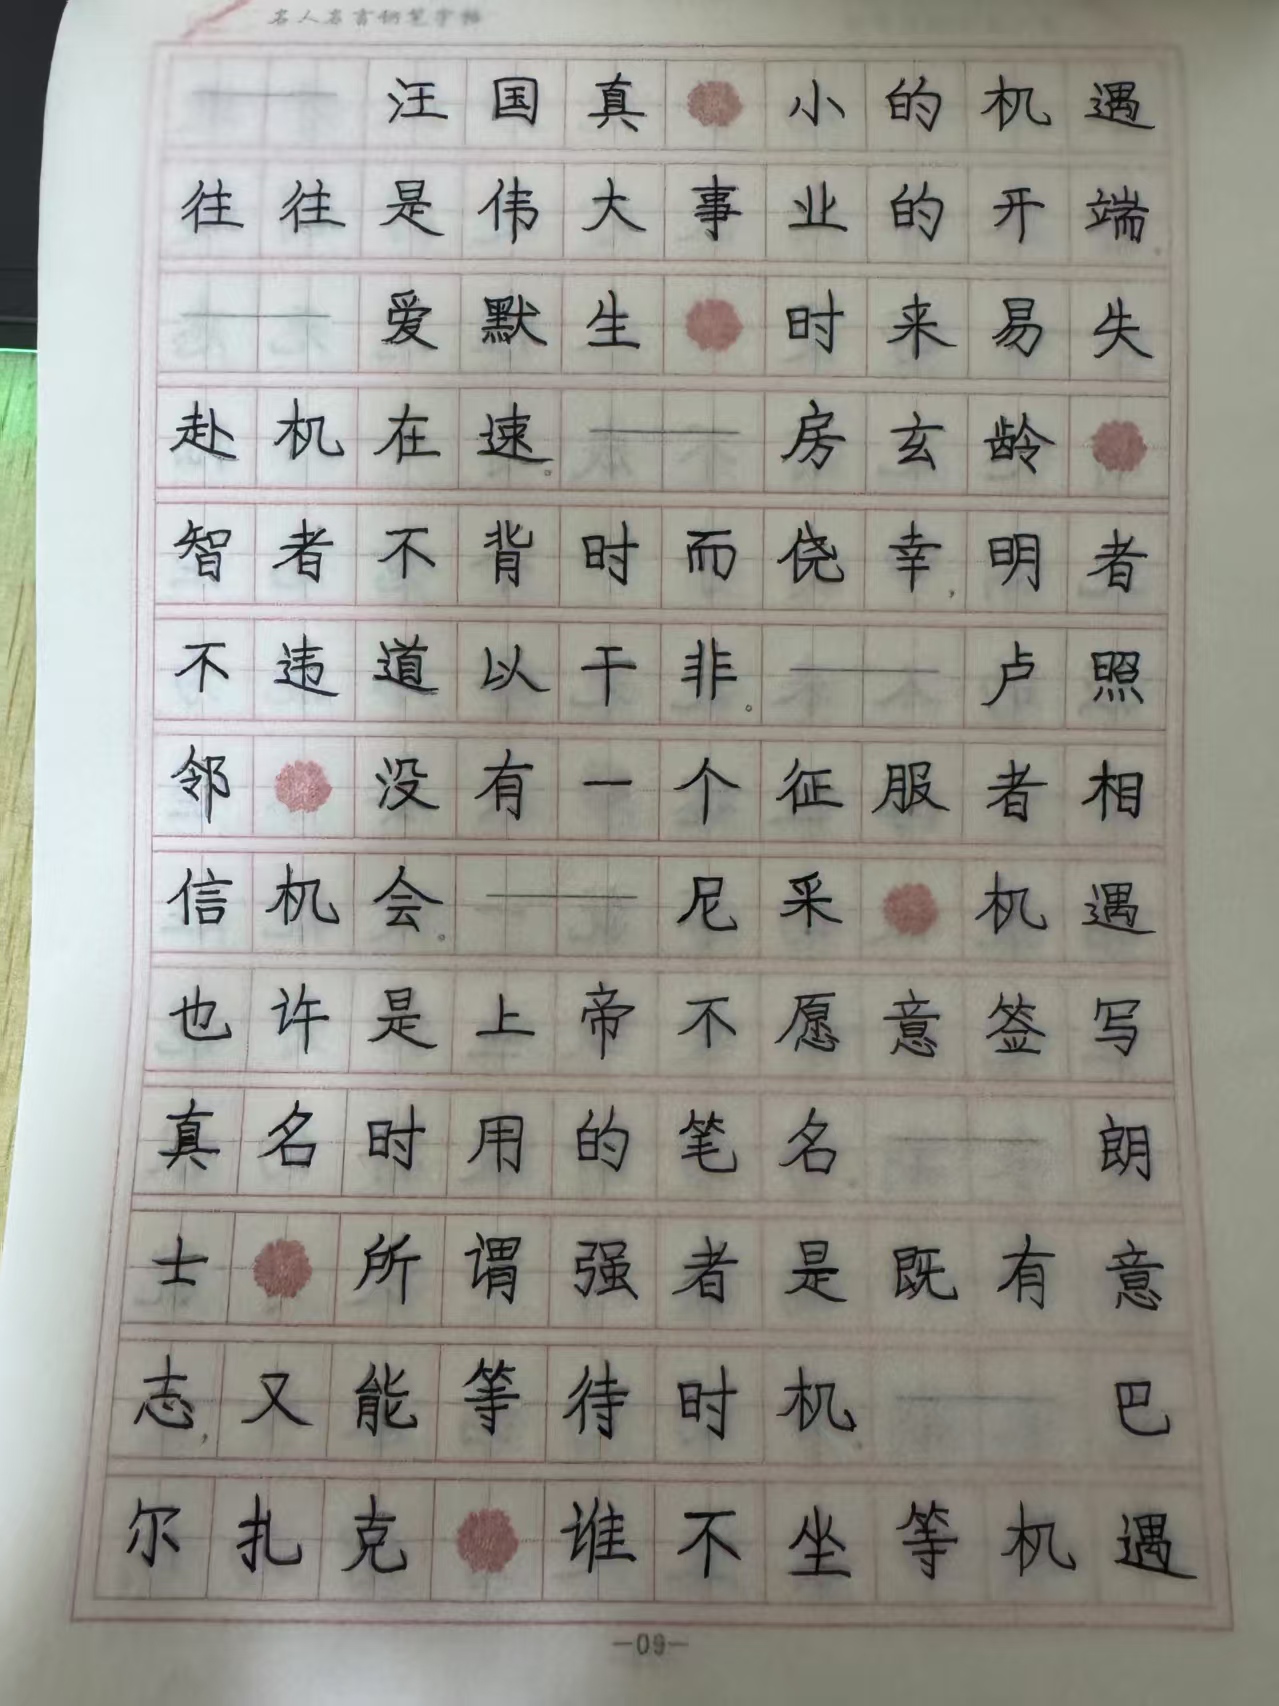 名人名言钢笔字帖
——汪国真 小的机遇
往往是伟大事业的开端。
——爱默生 时来易失
赴机在速。——房玄龄
智者不背时而侥幸,明者
不违道以干非。——卢照
邻 没有一个征服者相
信机会。——尼采 机遇
也许是上帝不愿意签写
真名时用的笔名。——朗
士 所谓强者是既有意
志,又能等待时机。——巴
尔扎克 谁不坐等机遇
—09—